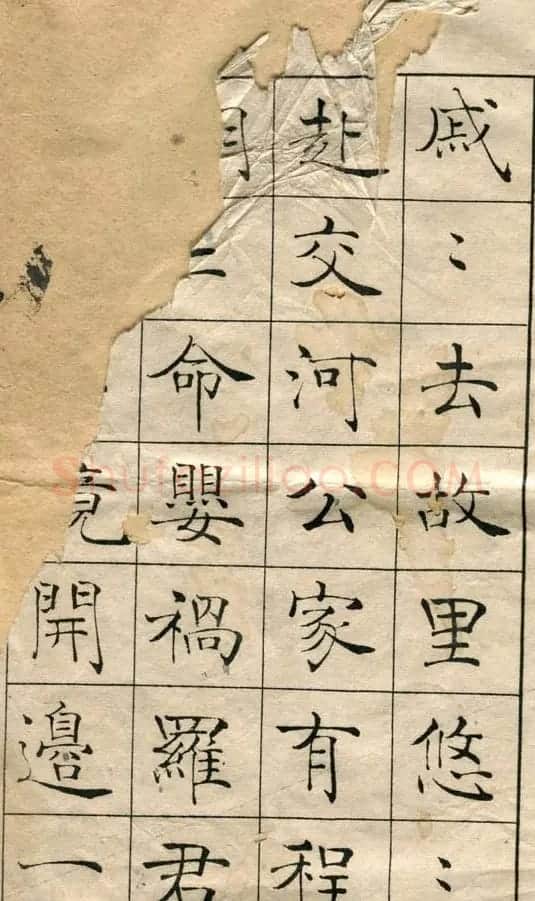 戚〻去故里悠〻
赴交河公家有程
命嬰禍羅君
開邊一